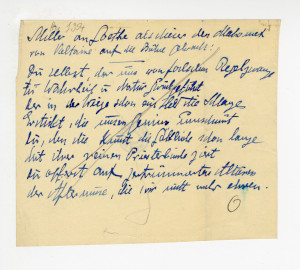 an Göthe als er den Mahomet
von Voltaire auf die Bühne
Du selbst, der uns von falschem Regelzwang
zu Wahrheit u Natur zurückgeführt
der in der Wiege schon ein Held die Schlange
Erstickt, die unsern Genius umschnürt
du, den die Kunst die göttliche schon lange
mit ihrer reinen Priesterbinde ziert
du opferst auf zertrümmerten Altären
der Aftermuse, die wir nicht mehr ehren.